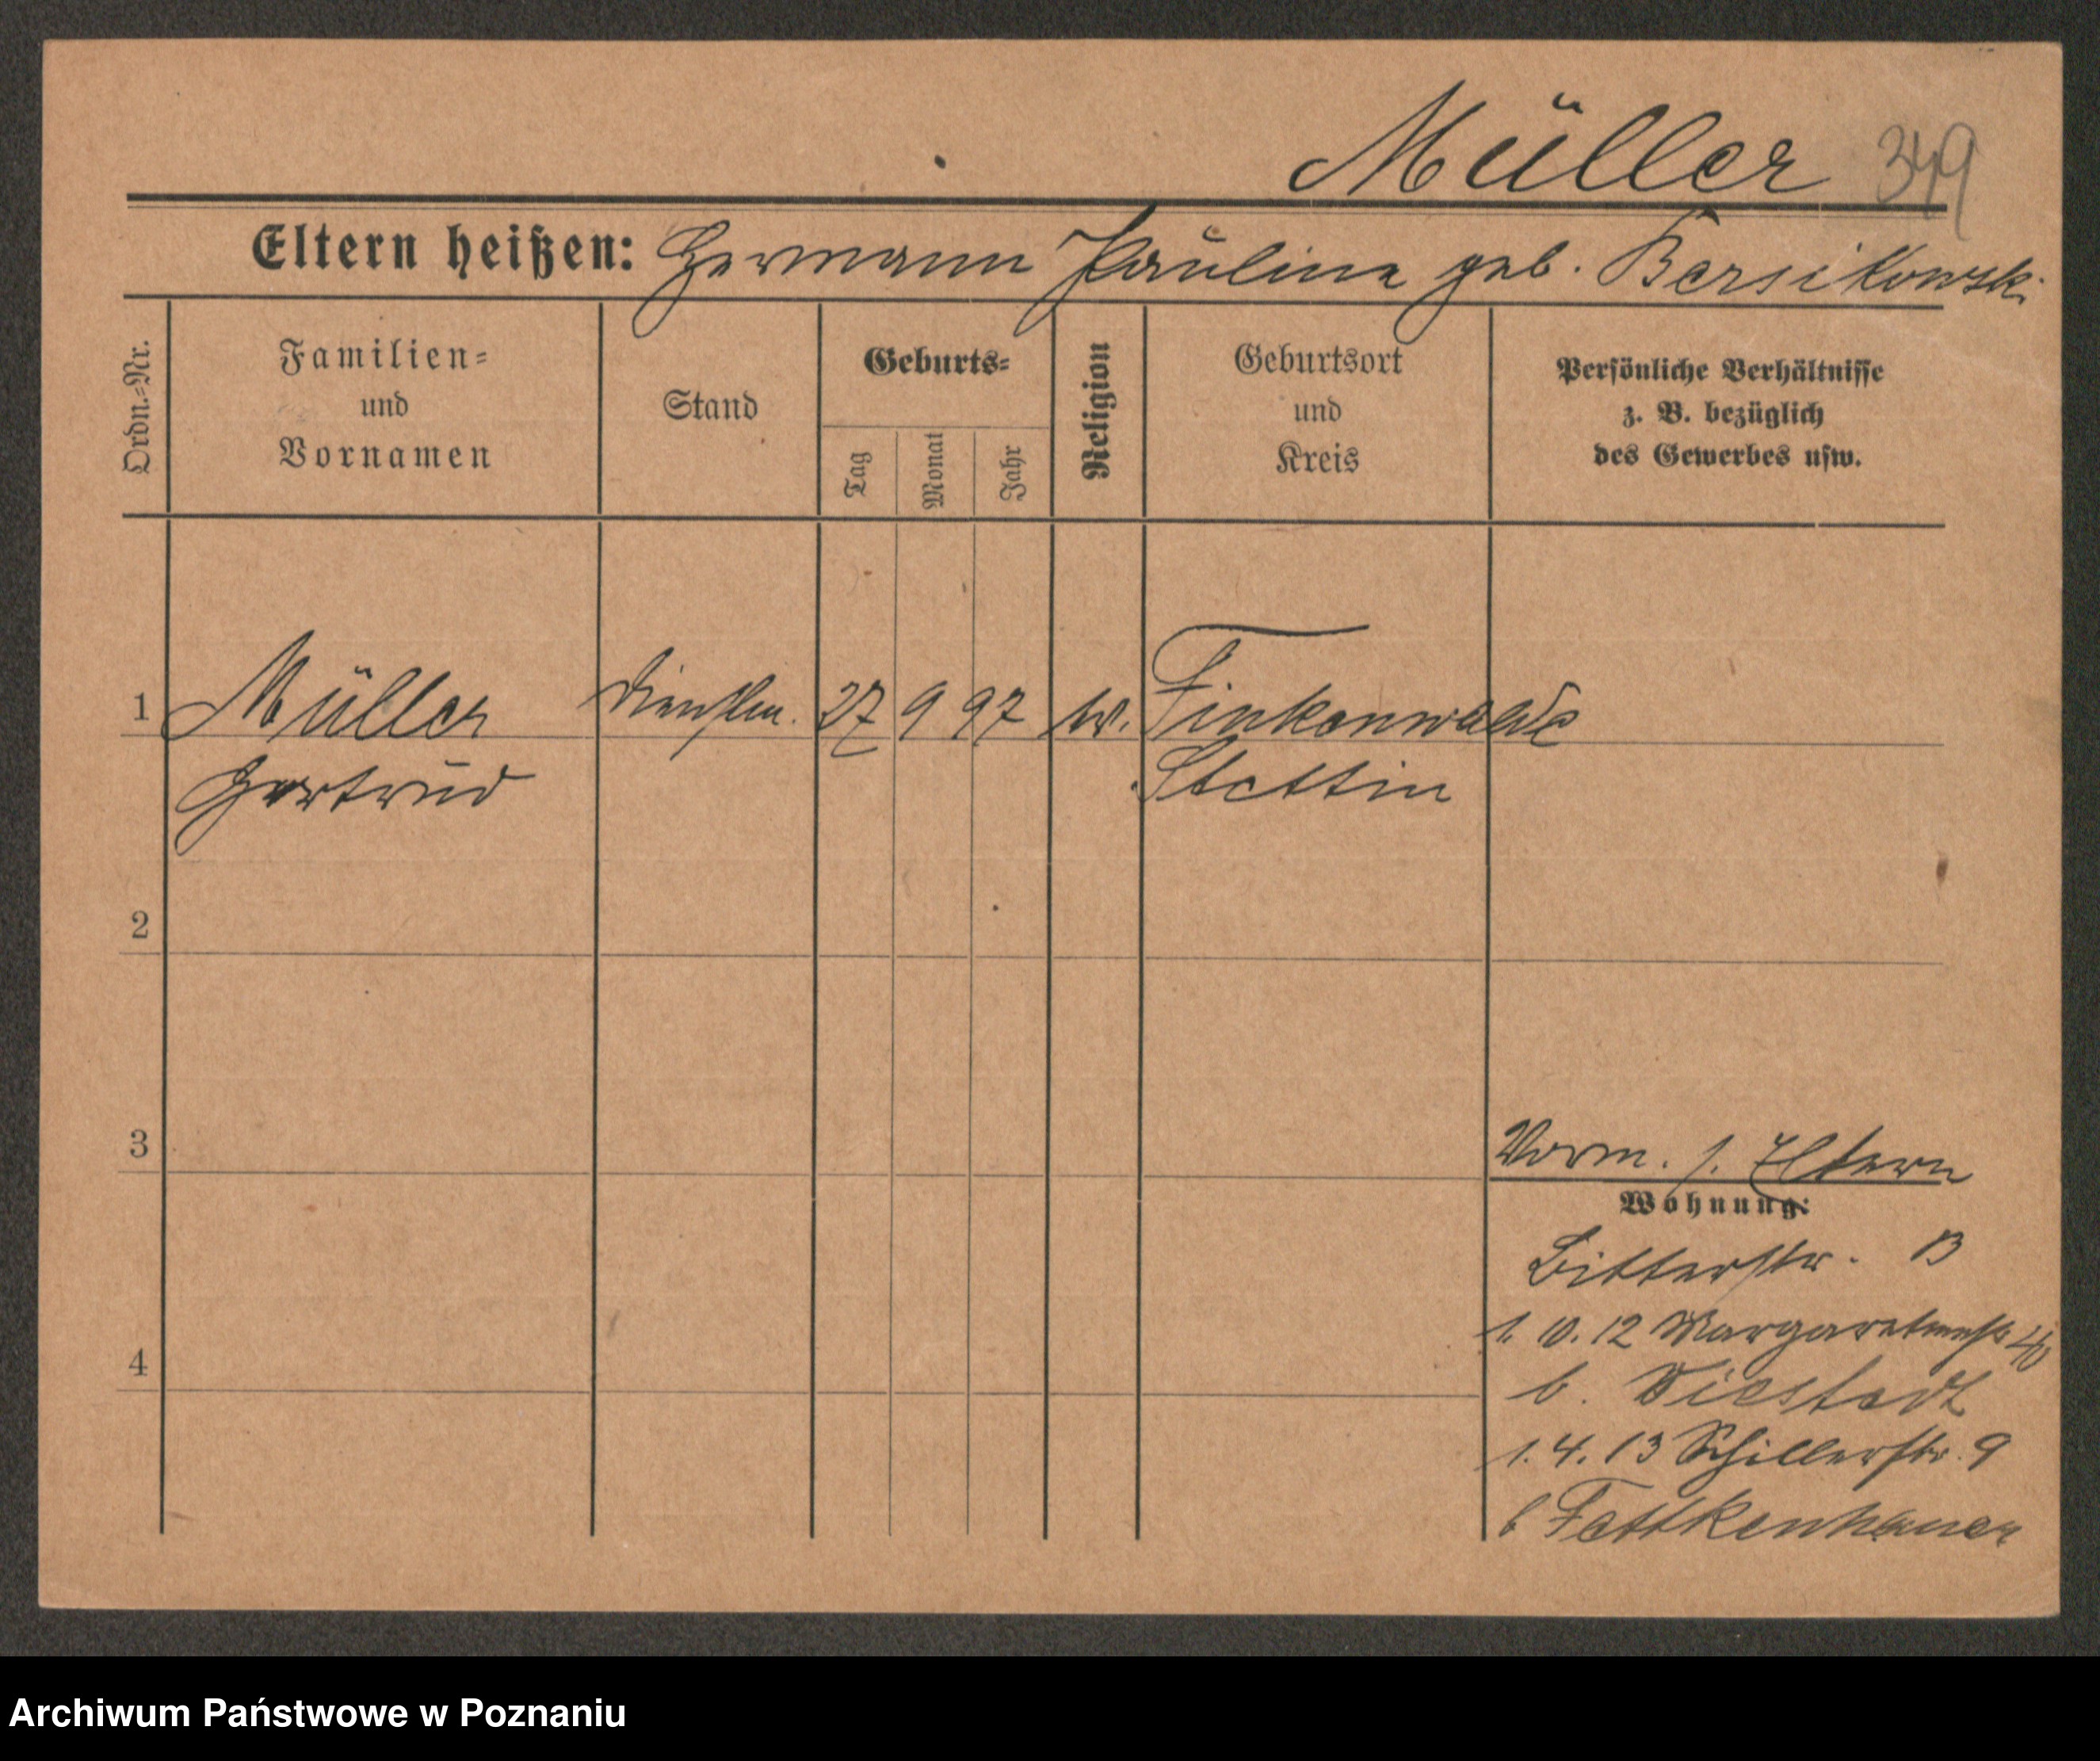 Müller 349
Eltern heißen: Hermann Pauline geb. Bersikowski
Ordn.-Nr.
Familien-
und
Vornamen
Stand
Geburts-
Tag
Monat
Jahr
Religion
Geburtsort
und
Kreis
Persönliche Verhältnisse
z. B. bezüglich
des Gewerbes usw.
1 Müller Dienstm. 27 9 97 Finkenwalde
Gertrud Stettin
2
3
Vorm. s. Eltern
Wohnung:
Bitterstr. 13
4
1. 10. 12 Margaretenstr 40
b.
1. 4. 13 Schillerstr. 9
b Fettkenhauer
Archiwum Państwowe w Poznaniu